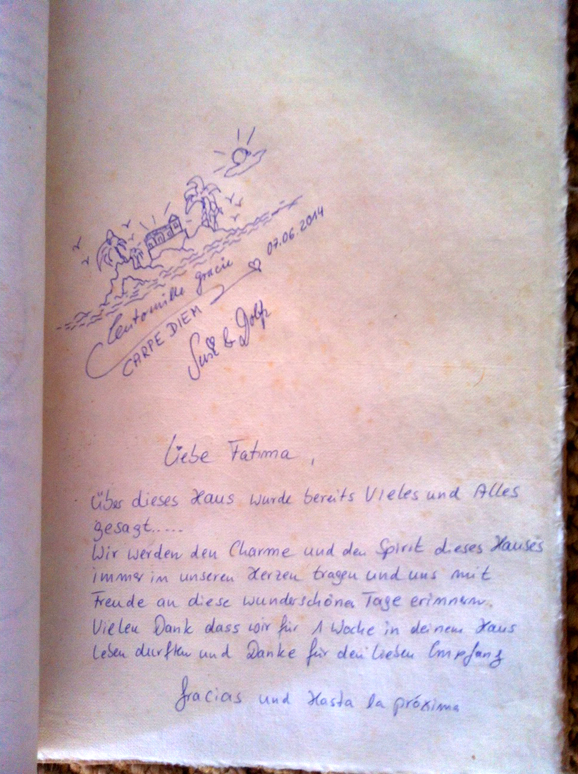 Centomille gracie
CARPE DIEM 07.06.2014
Susi & Dolf
Liebe Fatima,
über dieses Haus wurde bereits Vieles und Alles
gesagt.....
Wir werden den Charme und den Spirit dieses Hauses
immer in unseren Herzen tragen und uns mit
Freude an diese wunderschönen Tage erinnern.
Vielen Dank dass wir für 1 Woche in deinem Haus
leben durften und Danke für den lieben Empfang
Gracias und Hasta la próxima